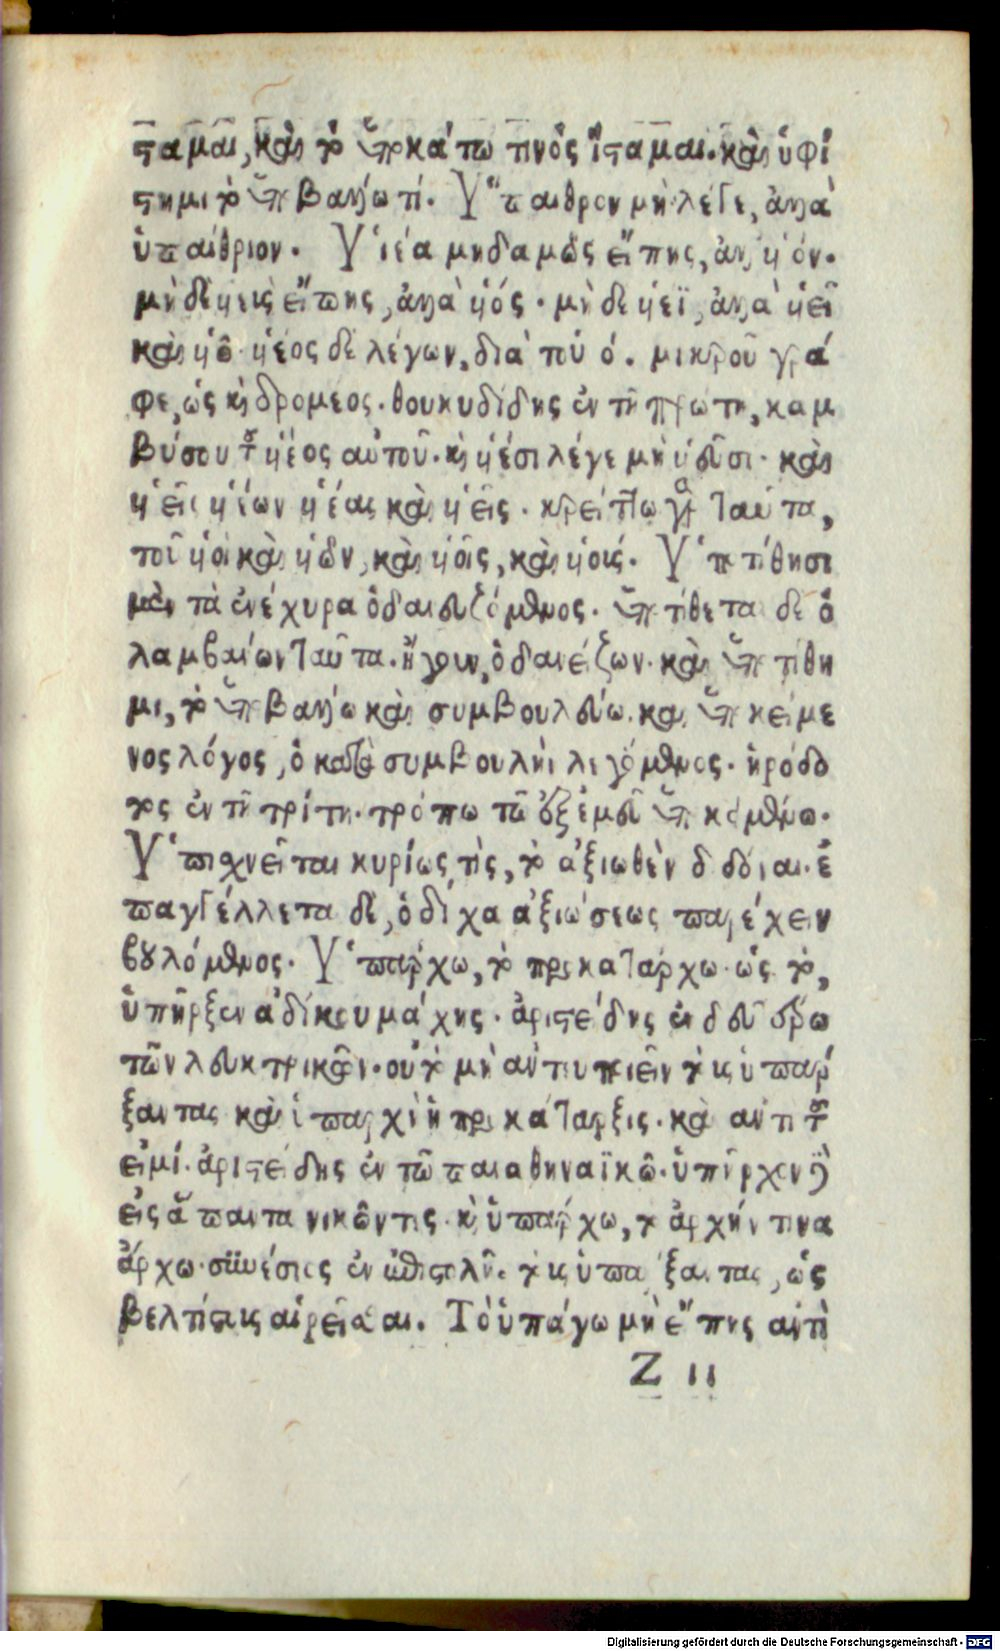 σταμαι, καὶ τὸ ὑπὸ κάτω τινὸς ἵσταμαι. καὶ ὑφί
στημι τὸ ὑποβάλλω τί. Ὕπαιθρον μὴ λέγε, ἀλλὰ
ὑπαίθριον. Υἱέα μηδαμῶς εἴπῃς, ἀλλ' υἱόν.
μὴ δὲ υἱεὺς εἴπῃς, ἀλλὰ υἱός. μὴ δὲ υἱέϊ, ἀλλὰ υἱεῖ
καὶ υἱῶ. υἱέος δὲ λέγων, διὰ τοῦ ο. μικροῦ γρά
φε, ὡς καὶ δρομέος. θουκυδίδης ἐν τῇ πρώτῃ, καμ
βύσου τοῦ υἱέος αὐτοῦ. καὶ υἱέσι λέγε μὴ υἱεῦσι. καὶ
υἱεῖς υἱέων υἱέας καὶ υἱεῖς. κρείττω γὰρ ταῦτα,
τοῦ υἱοὶ καὶ υἱῶν, καὶ υἱοῖς, καὶ υἱούς. Ὑποτίθησι
μὲν τὰ ἐνέχυρα ὁ δανειζόμενος. ὑποτίθεται δὲ ὁ
λαμβάνων ταῦτα. ἤγουν, ὁ δανείζων. καὶ ὑποτίθη
μι, τὸ ὑποβάλλω καὶ συμβουλεύω. καὶ ὑποκείμε
νος λόγος, ὁ κατὰ συμβουλὴν λεγόμενος. ἡρόδο
τος ἐν τῇ τρίτῃ. τρόπω τῶ ἐξ ἐμεῦ ὑποκειμένω.
Ὑπισχνεῖται κυρίως τὶς, τὸ ἀξιωθὲν δοῦναι. ἐ
παγγέλλεται δὲ, ὁ δίχα ἀξιώσεως παρέχειν
βουλόμενος. Ὑπάρχω, τὸ προκατάρχω. ὡς τὸ,
ὑπῆρξεν ἀδίκου μάχης. ἀριστείδης ἐν δευτέρω
τῶν λευκτρικῶν. οὐ τὸ μὴ ἀντευποιεῖν τοὺς ὑπάρ
ξαντας καὶ ὑπαρχὴ ἡ προκάταρξις. καὶ ἀντὶ τοῦ
εἰμί. ἀριστείδης ἐν τῶ παναθηναϊκῶ. ὑπῆρχον
εἰς ἅπαντα νικῶντες. καὶ ὑπάρχω, τὸ ἀρχήν τινα
ἄρχω. συνέσιος ἐν ἐπιστολῇ. τοὺς ὑπάρξαντας, ὡς
βελτίστους αἱρεῖσθαι. Τὸ ὑπάγω μὴ εἴπῃς ἀντὶ
Z ii
Digitalisierung gefördert durch die Deutsche Forschungsgemeinschaft - DFG